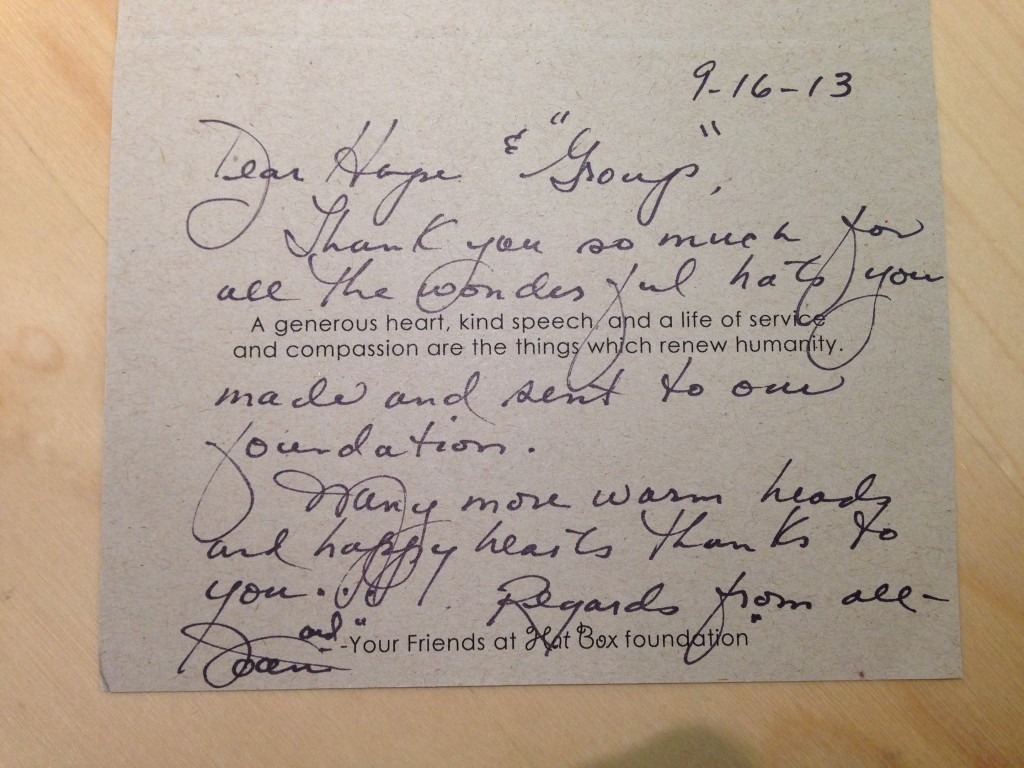 9-16-13
Dear Hope & "Group",
Thank you so much for
all the wonderful hats you
A generous heart, kind speech, and a life of service
and compassion are the things which renew humanity.
made and sent to our
foundation.
Many more warm heads
and happy hearts thanks to
you. Regards from all-
-Your Friends at Hat Box foundation
and